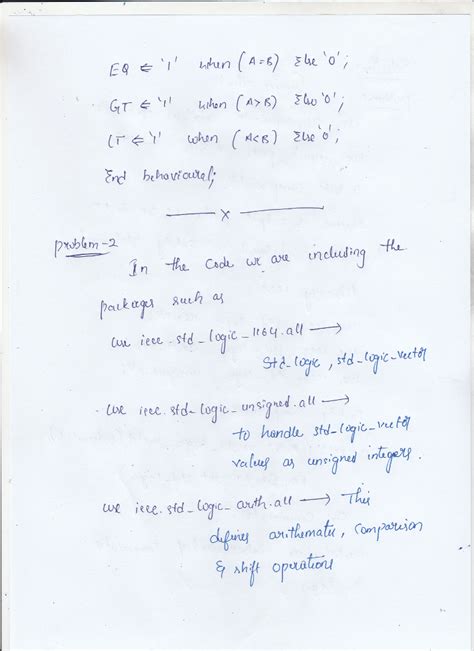 EQ <= '1' when (A=B) Else '0';
GT <= '1' when (A>B) Else '0';
LT <= '1' when (A<B) Else '0';
End behavioural;
x
problem-2
In the Code we are including the
packages such as
use ieee.std_logic_1164.all →
Std_logic, std_logic_vector
use ieee.std_logic_unsigned.all →
to handle std_logic_vector
values as unsigned integers.
use ieee.std_logic_arith.all → This
defines arithmatic, comparision
& shift operations